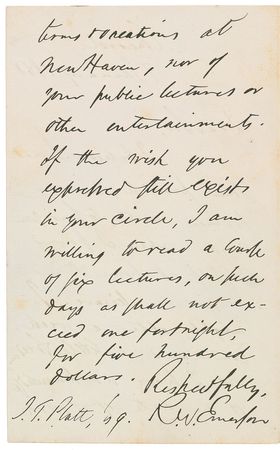 terms & vacations at
New Haven, nor of
your public lectures or
other entertainments.
If the wish you
expressed still exists
in your circle, I am
willing to read a course
of six lectures, on such
days as shall not ex-
ceed one fortnight,
for five hundred
dollars. Respectfully,
J. T. Platt, Esq. R. W. Emerson